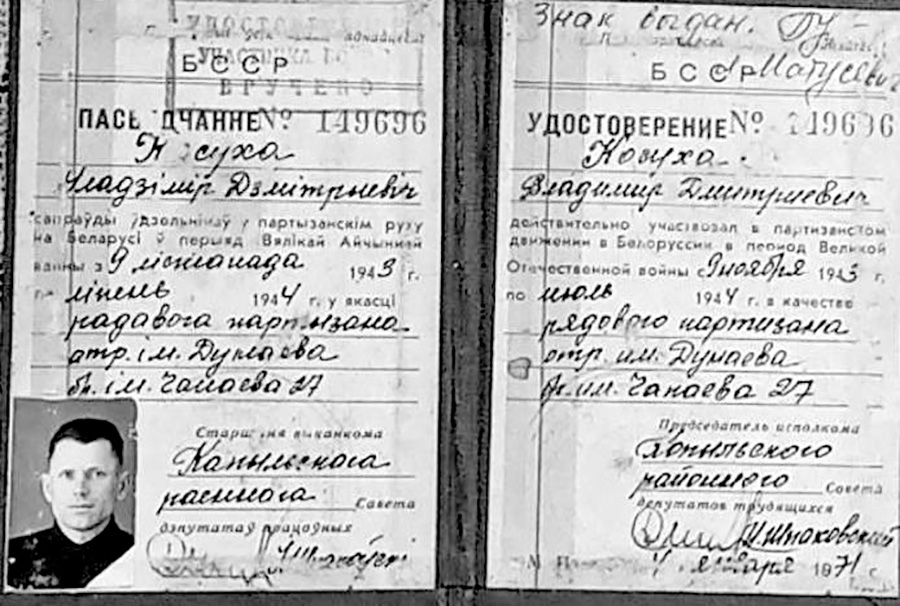 УДОСТОВ
УЧАСТНИКА
ВРУЧЕНО
БССР
ПАСВ ДЧАННЕ № 149696
К суха
Уладзімір Дзмітрыевіч
сапраўды ўдзельнічаў у партызанскім руху
на Беларусі ў перыяд Вялікай Айчыннай
вайны з 9 лістапада 1943 г.
ліпень 1944 г. у якасці
радавога партызана
атр. ім. Дунаева
бр. ім. Чапаева 27
Старшыня выканкома
Капыльскага
раённага Савета
дэпутатаў працоўных
Знак выдан.
БССР Матусевич
УДОСТОВЕРЕНИЕ № 149696
Косуха
Владимир Дмитриевич
действительно участвовал в партизанском
движении в Белоруссии в период Великой
Отечественной войны с 9 ноября 1943 г.
по июль 1944 г. в качестве
рядового партизана
отр. им. Дунаева
бр. им. Чапаева 27
Председатель исполкома
Копыльского
районного Совета
депутатов трудящихся
И. Шпаковский
января 1971 г.